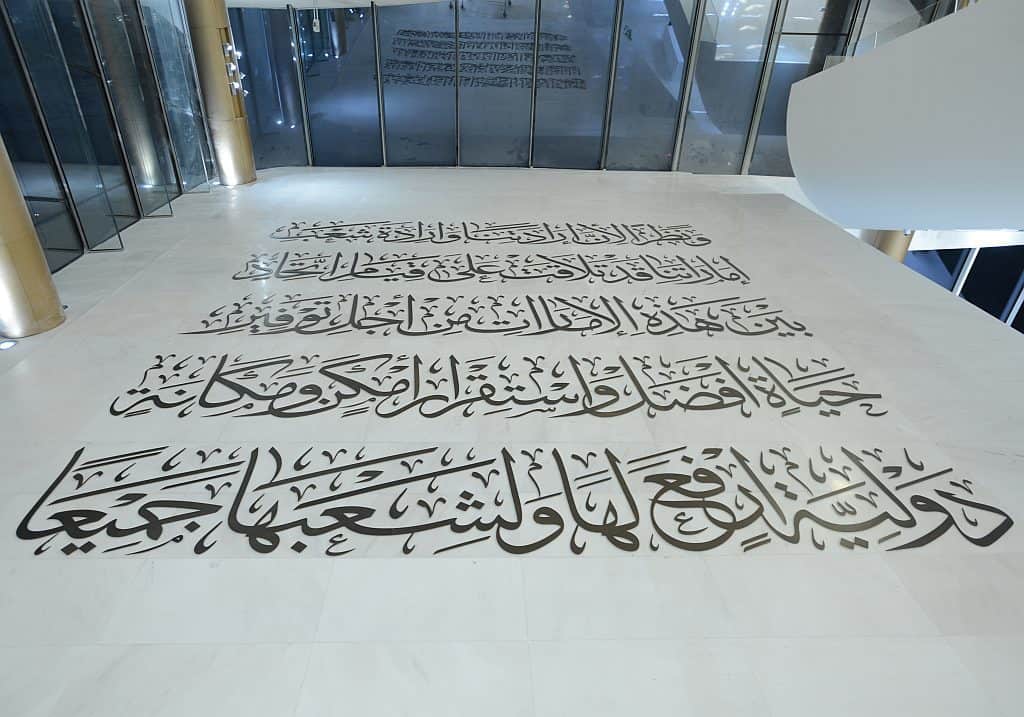 ونظراً لأن إرادتنا وإرادة شعب
إماراتنا قد تلاقت على قيام اتحاد
بين هذه الإمارات من أجل توفير
حياة أفضل واستقرار أمكن ومكانة
دولية أرفع لها ولشعبها جميعاً